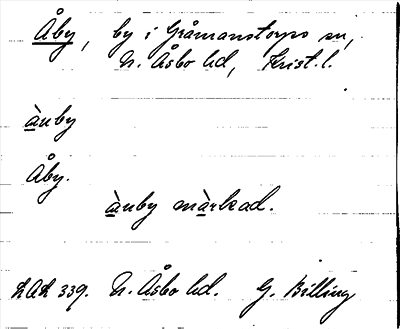 Åby, by i Gråmanstorps sn,
N. Åsbo hd, Krist. l.
ànby
Åby.
ànby màrkad.
LAL 339. N. Åsbo hd. G. Billing